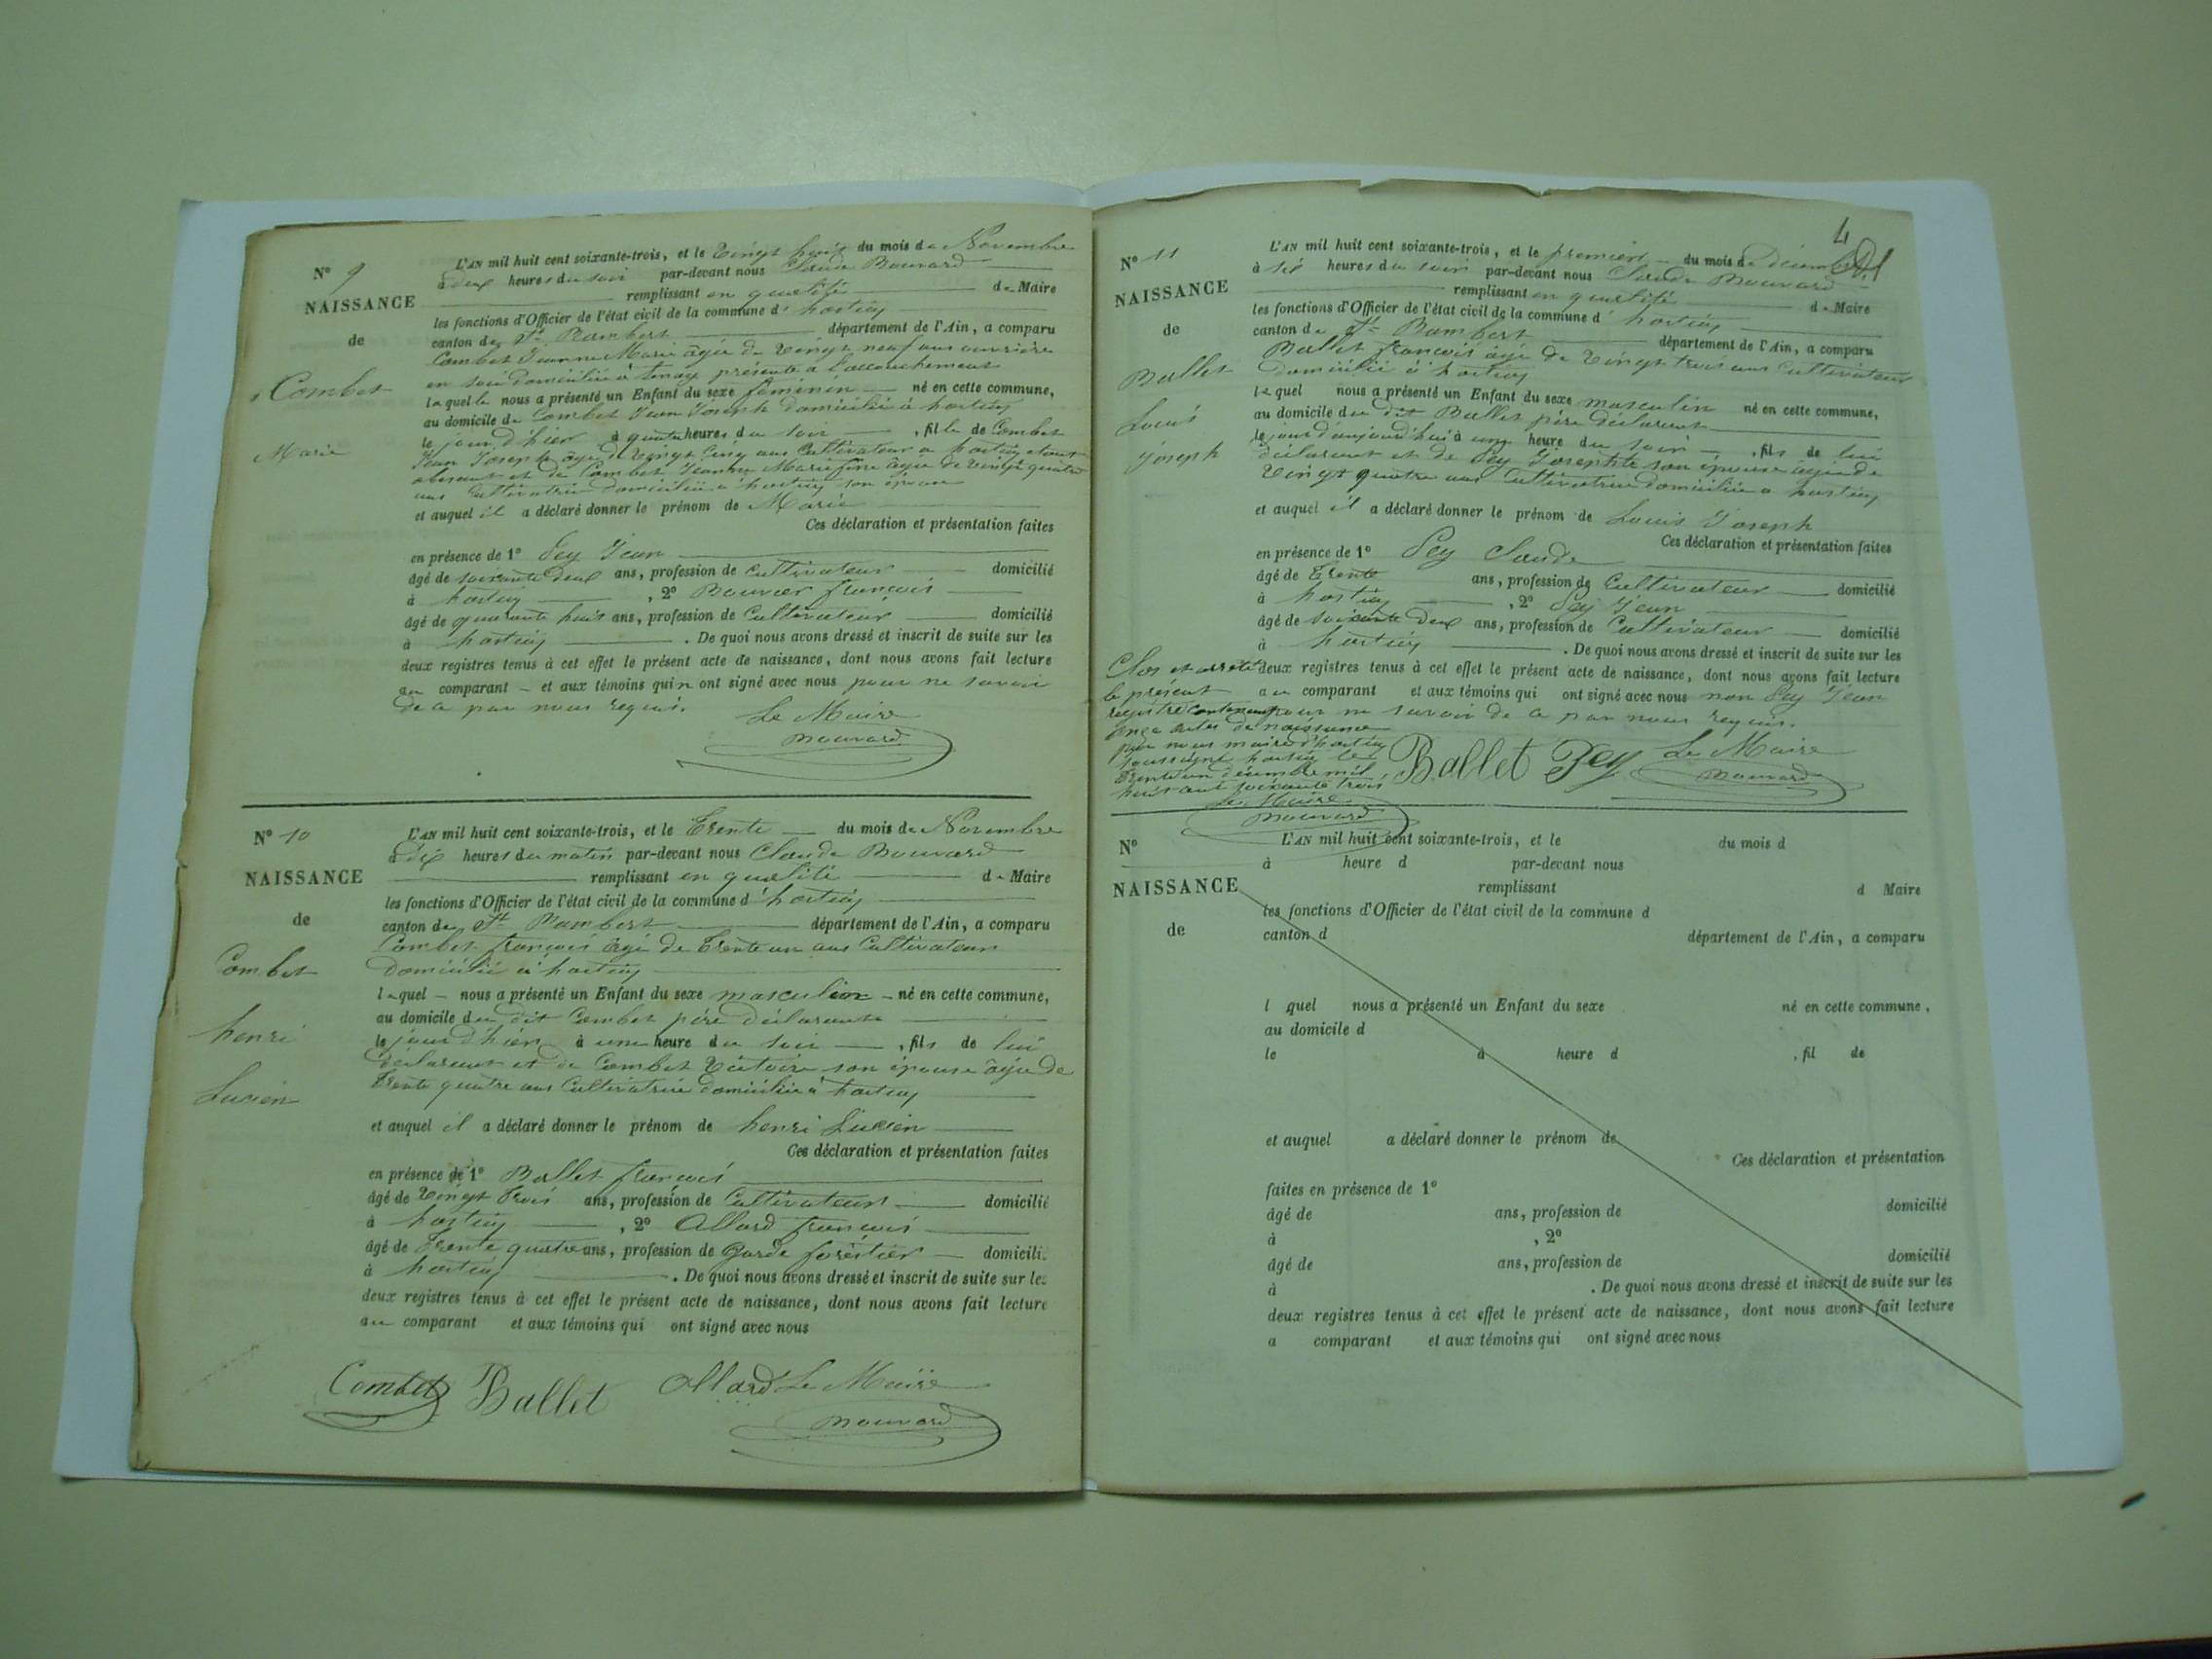 N° 9
NAISSANCE
de
Combet
Marie
L'AN mil huit cent soixante-trois, et le Vingt huit du mois de Novembre
à deux heures du soir par-devant nous Claude Bouvard
remplissant en qualité de Maire
les fonctions d'Officier de l'état civil de la commune d' hostiaz
canton de St Rambert département de l'Ain, a comparu
Combet Jeanne Marie âgée de Vingt neuf ans ouvrière
en soie domiciliée à tenay présente a l'accouchement
laquelle nous a présenté un Enfant du sexe féminin né en cette commune,
au domicile de Combet Jean Joseph domicilié à hostiaz
le jour d'hier à quatre heures du soir , fille de Combet
Jean Joseph âgé de Vingt Cinq ans Cultivateur a hostiaz etant
absent et de Combet Jeanne Marie fine âgée de Vingt quatre
ans Cultivatrice domiciliée a hostiaz son épouse
et auquel il a déclaré donner le prénom de Marie
Ces déclaration et présentation faites
en présence de 1° Pey Jean
âgé de soixante deux ans, profession de Cultivateur domicilié
à hostiaz , 2° Bouvier françois
âgé de quarante huit ans, profession de Cultivateur domicilié
à hostiaz . De quoi nous avons dressé et inscrit de suite sur les
deux registres tenus à cet effet le présent acte de naissance, dont nous avons fait lecture
au comparant et aux témoins qui n ont signé avec nous pour ne savoir
de ce par nous requis.
Le Maire
Bouvard
N° 10
NAISSANCE
de
Combet
henri
Lucien
L'AN mil huit cent soixante-trois, et le Trente du mois de Novembre
à dix heures du matin par-devant nous Claude Bouvard
remplissant en qualité de Maire
les fonctions d'Officier de l'état civil de la commune d' hostiaz
canton de St Rambert département de l'Ain, a comparu
Combet françois âgé de Trente un ans Cultivateur
domicilié à hostiaz
lequel nous a présenté un Enfant du sexe masculin né en cette commune,
au domicile du dit Combet père déclarant
le jour d'hier à une heure du soir , fils de lui
déclarant et de Combet Victoire son épouse âgée de
Trente quatre ans Cultivatrice domiciliée à hostiaz
et auquel il a déclaré donner le prénom de henri Lucien
Ces déclaration et présentation faites
en présence de 1° Ballet françois
âgé de Vingt Trois ans, profession de Cultivateur domicilié
à hostiaz , 2° Allard françois
âgé de Trente quatre ans, profession de Garde forestier domicili
à hostiaz . De quoi nous avons dressé et inscrit de suite sur les
deux registres tenus à cet effet le présent acte de naissance, dont nous avons fait lecture
au comparant et aux témoins qui ont signé avec nous
Combet Ballet Allard Le Maire
Bouvard
4
N° 11
NAISSANCE
de
Ballet
Louis
Joseph
L'AN mil huit cent soixante-trois, et le premier du mois de décembre
à six heures du soir par-devant nous Claude Bouvard
remplissant en qualité de Maire
les fonctions d'Officier de l'état civil de la commune d' hostiaz
canton de St Rambert département de l'Ain, a comparu
Ballet françois âgé de Vingt trois ans Cultivateur
domicilié à hostiaz
lequel nous a présenté un Enfant du sexe masculin né en cette commune,
au domicile du dit Ballet père déclarant
le jour d'aujourd'hui à une heure du soir , fils de lui
déclarant et de Pey Josephte son épouse âgée de
Vingt quatre ans Cultivatrice domiciliée a hostiaz
et auquel il a déclaré donner le prénom de Louis Joseph
Ces déclaration et présentation faites
en présence de 1° Pey Claude
âgé de Trente ans, profession de Cultivateur domicilié
à hostiaz , 2° Pey Jean
âgé de soixante deux ans, profession de Cultivateur domicilié
à hostiaz . De quoi nous avons dressé et inscrit de suite sur les
deux registres tenus à cet effet le présent acte de naissance, dont nous avons fait lecture
au comparant et aux témoins qui ont signé avec nous non Pey Jean
pour ne savoir de ce par nous requis.
Ballet Pey Le Maire
Bouvard
Clos et arreté
le présent
registre contenant
onze actes de naissance
par nous maire d'hostiaz
soussigné hostiaz le
Trente un décembre mil
huit cent soixante trois
Le Maire
Bouvard
N°
NAISSANCE
de
L'AN mil huit cent soixante-trois, et le du mois d
à heure d par-devant nous
remplissant d Maire
les fonctions d'Officier de l'état civil de la commune d
canton d département de l'Ain, a comparu
l quel nous a présenté un Enfant du sexe né en cette commune,
au domicile d
le à heure d , fil de
et auquel a déclaré donner le prénom de
Ces déclaration et présentation
faites en présence de 1°
âgé de ans, profession de domicilié
à , 2°
âgé de ans, profession de domicilié
à . De quoi nous avons dressé et inscrit de suite sur les
deux registres tenus à cet effet le présent acte de naissance, dont nous avons fait lecture
a comparant et aux témoins qui ont signé avec nous